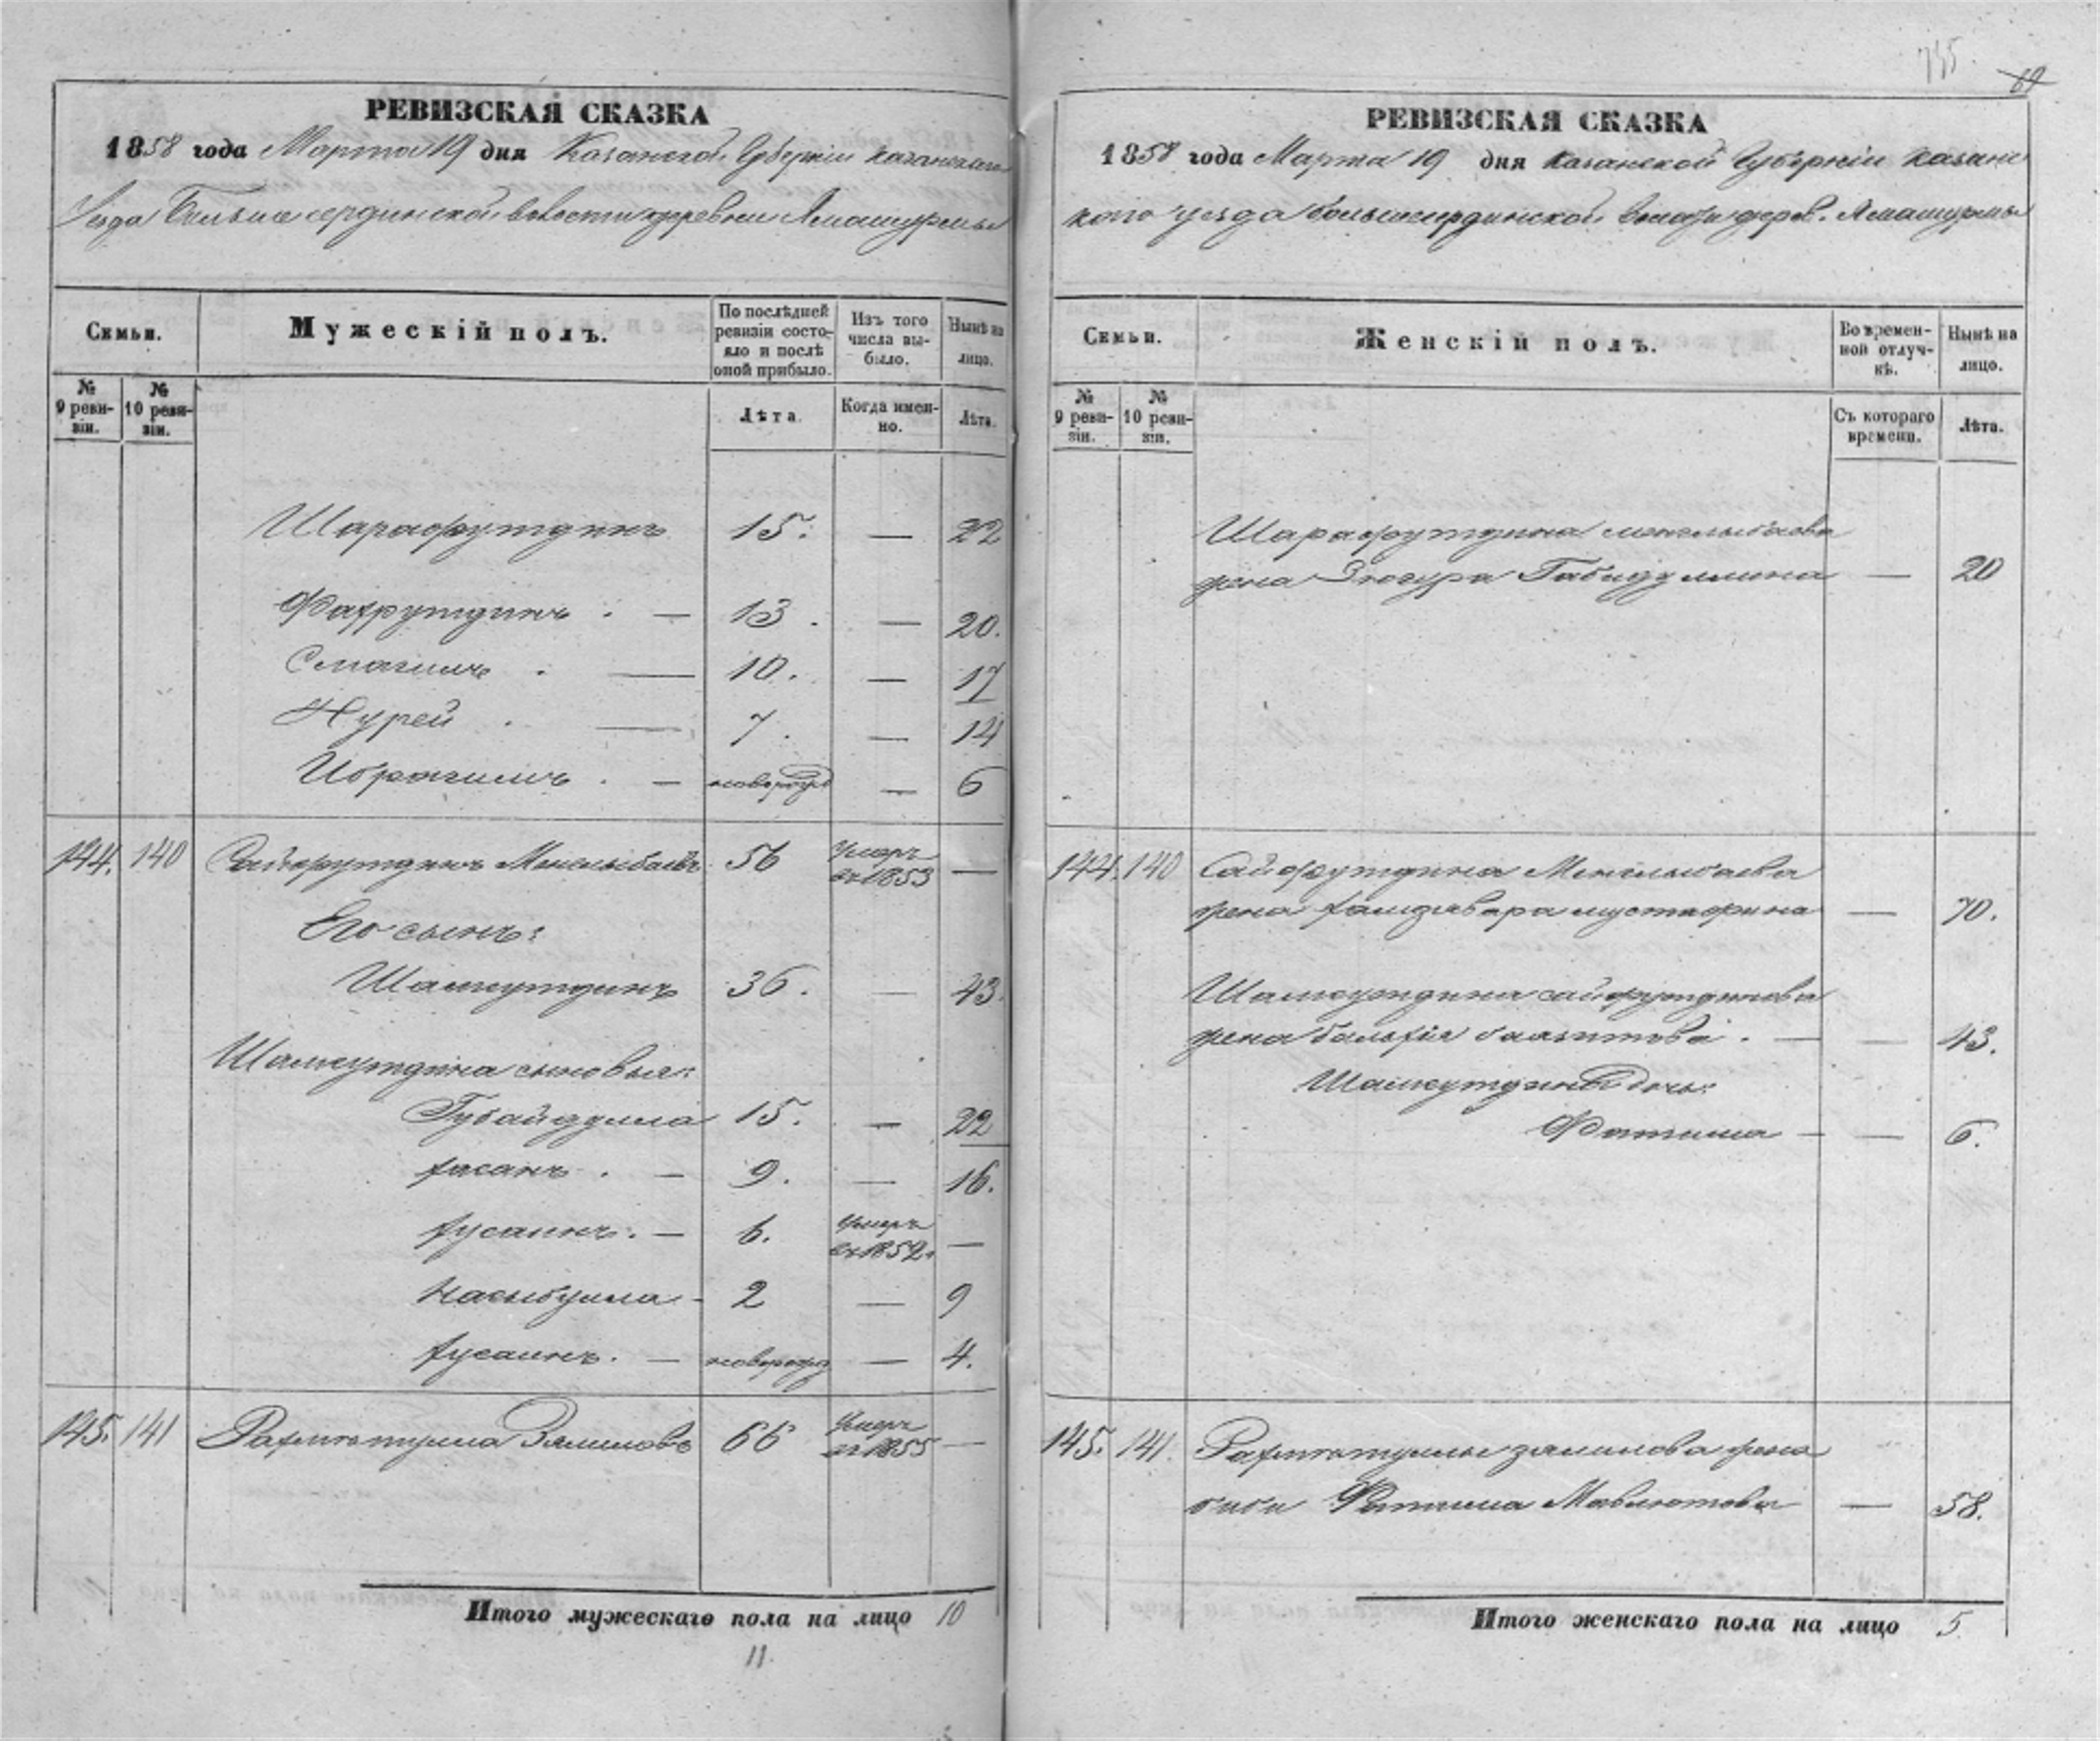 РЕВИЗСКАЯ СКАЗКА
1858 года Марта 19 дня Казанской Губернии Казанскаго
Уезда Больше сердинской волости деревни Ямашурмы
Семьи.
Мужескій полъ.
По послѣдней ревизіи состояло и послѣ оной прибыло.
Изъ того числа выбыло.
Нынѣ на лицо.
№ 9 ревизіи.
№ 10 ревизіи.
Лѣта.
Когда именно.
Лѣта.
Шарафутдинъ 15. — 22
Фахрутдинъ . — 13. — 20.
Смагилъ . — 10. — 17
Нурей . — 7. — 14
Ибрагимъ . — новорожд — 6
144. 140 Сайфутдинъ Менглыбаевъ 56 Умеръ въ 1853 —
Его сынъ:
Шамсутдинъ 36. — 43.
Шамсутдина сыновья:
Губайдулла 15. — 22
Хасанъ . — 9. — 16.
Хусаинъ. — 6. Умеръ въ 1852. —
Насыбулла - 2 — 9
Хусаинъ. — новорожд — 4.
145. 141 Рахметулла Замиловъ 66 Умеръ въ 1855 —
Итого мужескаго пола на лицо 10
11.
735.
69
РЕВИЗСКАЯ СКАЗКА
1858 года Марта 19 дня Казанской Губерніи Казанс
кого уезда большесердинской волости дерев. Ямашурмы
Семьи.
Женскій полъ.
Во временной отлучкѣ.
Нынѣ на лицо.
№ 9 ревизіи.
№ 10 ревизіи.
Съ котораго времени.
Лѣта.
Шарафутдина менглыбаева
жена Зюгура Габидуллина — 20
144. 140 Сайфутдина Менглыбаева
жена мустафина — 70.
Шамсутдина сайфутдинова
жена — — 43.
Шамсутдина дочь:
Фатима — — 6.
145. 141. Рахметуллы замилова жена
биби Фатима Мавлютова — 58.
Итого женскаго пола на лицо 5